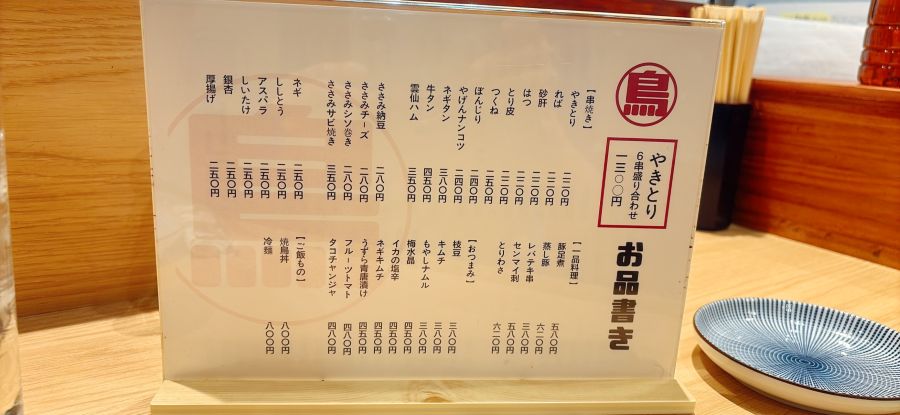 鳥
やきとり
6串盛り合わせ
一三〇〇円
お品書き
【串焼き】
やきとり 二二〇円
れば 二二〇円
砂肝 二二〇円
はつ 二二〇円
とり皮 二二〇円
つくね 二五〇円
ぼんじり 二四〇円
やげんナンコツ 二四〇円
ネギタン 三八〇円
牛タン 四五〇円
雲仙ハム 三五〇円
ささみ納豆 二八〇円
ささみチーズ 二八〇円
ささみシソ巻き 二八〇円
ささみサビ焼き 三五〇円
ネギ 二五〇円
ししとう 二五〇円
アスパラ 二五〇円
しいたけ 二五〇円
銀杏 二五〇円
厚揚げ 二五〇円
【一品料理】
豚足煮 五八〇円
蒸し豚 六二〇円
レバテキ串 三八〇円
センマイ刺 五八〇円
とりわさ 六二〇円
【おつまみ】
枝豆 三八〇円
キムチ 三八〇円
もやしナムル 三八〇円
梅水晶 四五〇円
イカの塩辛 四五〇円
ネギキムチ 四五〇円
うずら青唐漬け 四五〇円
フルーツトマト 四八〇円
タコチャンジャ 四八〇円
【ご飯もの】
焼鳥丼 八〇〇円
冷麺 八〇〇円